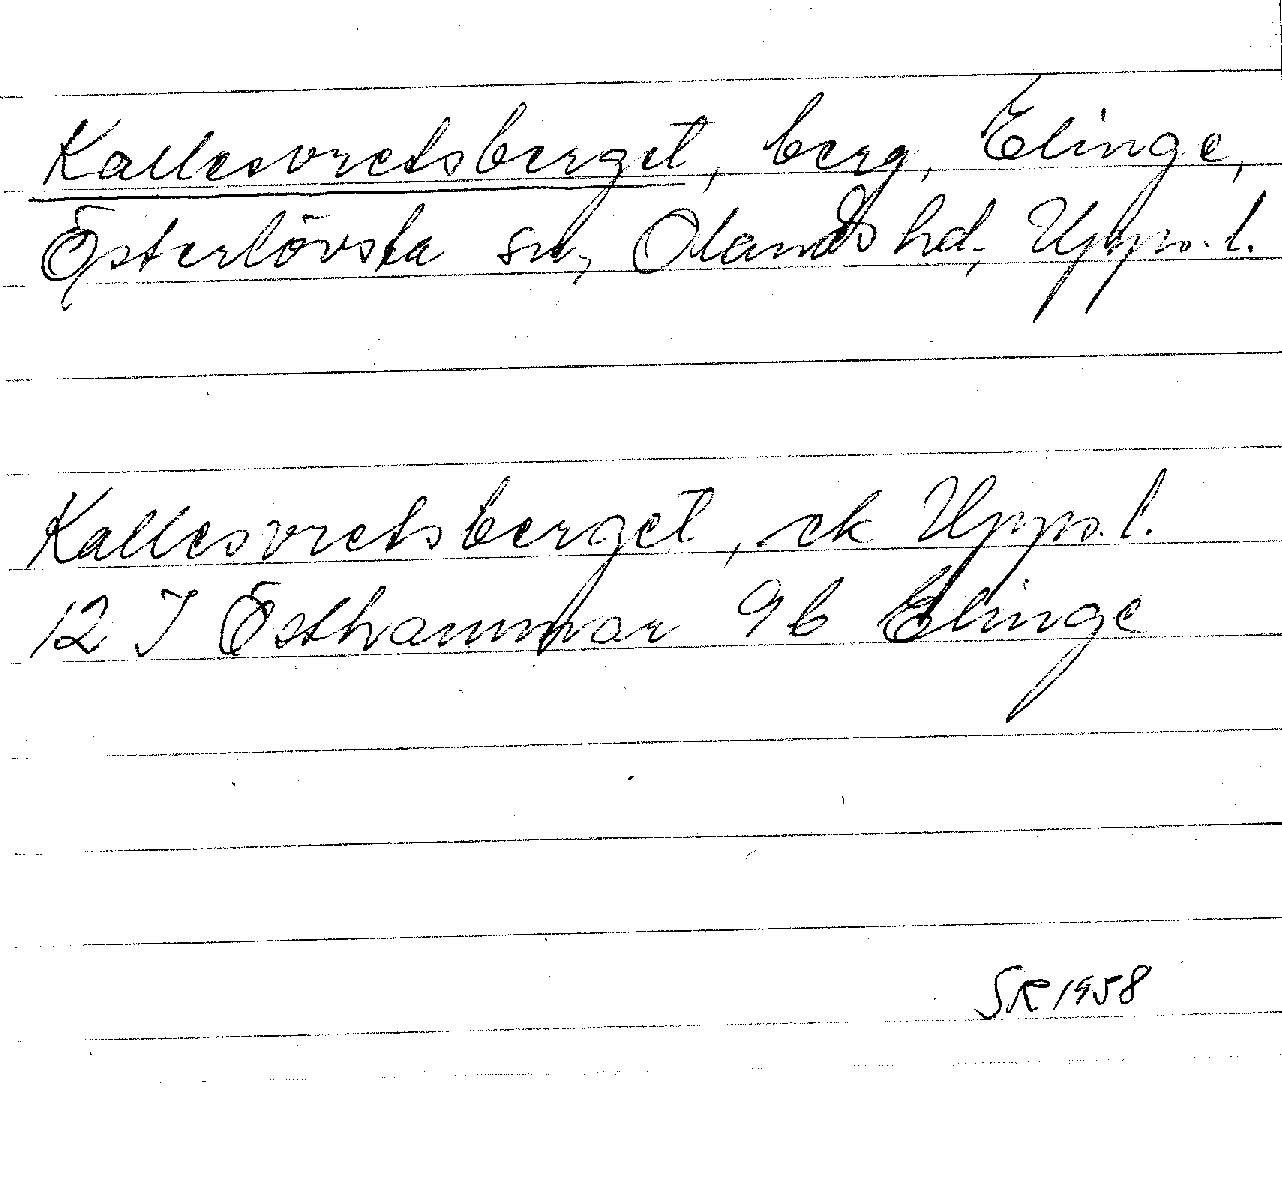 Kallesvretsberget, berg, Elinge,
Österlövsta sn, Olands hd, Upps. l.
Kallesvretsberget, ek Upps. l.
12 I Östhammar 9b Elinge
SR 1958